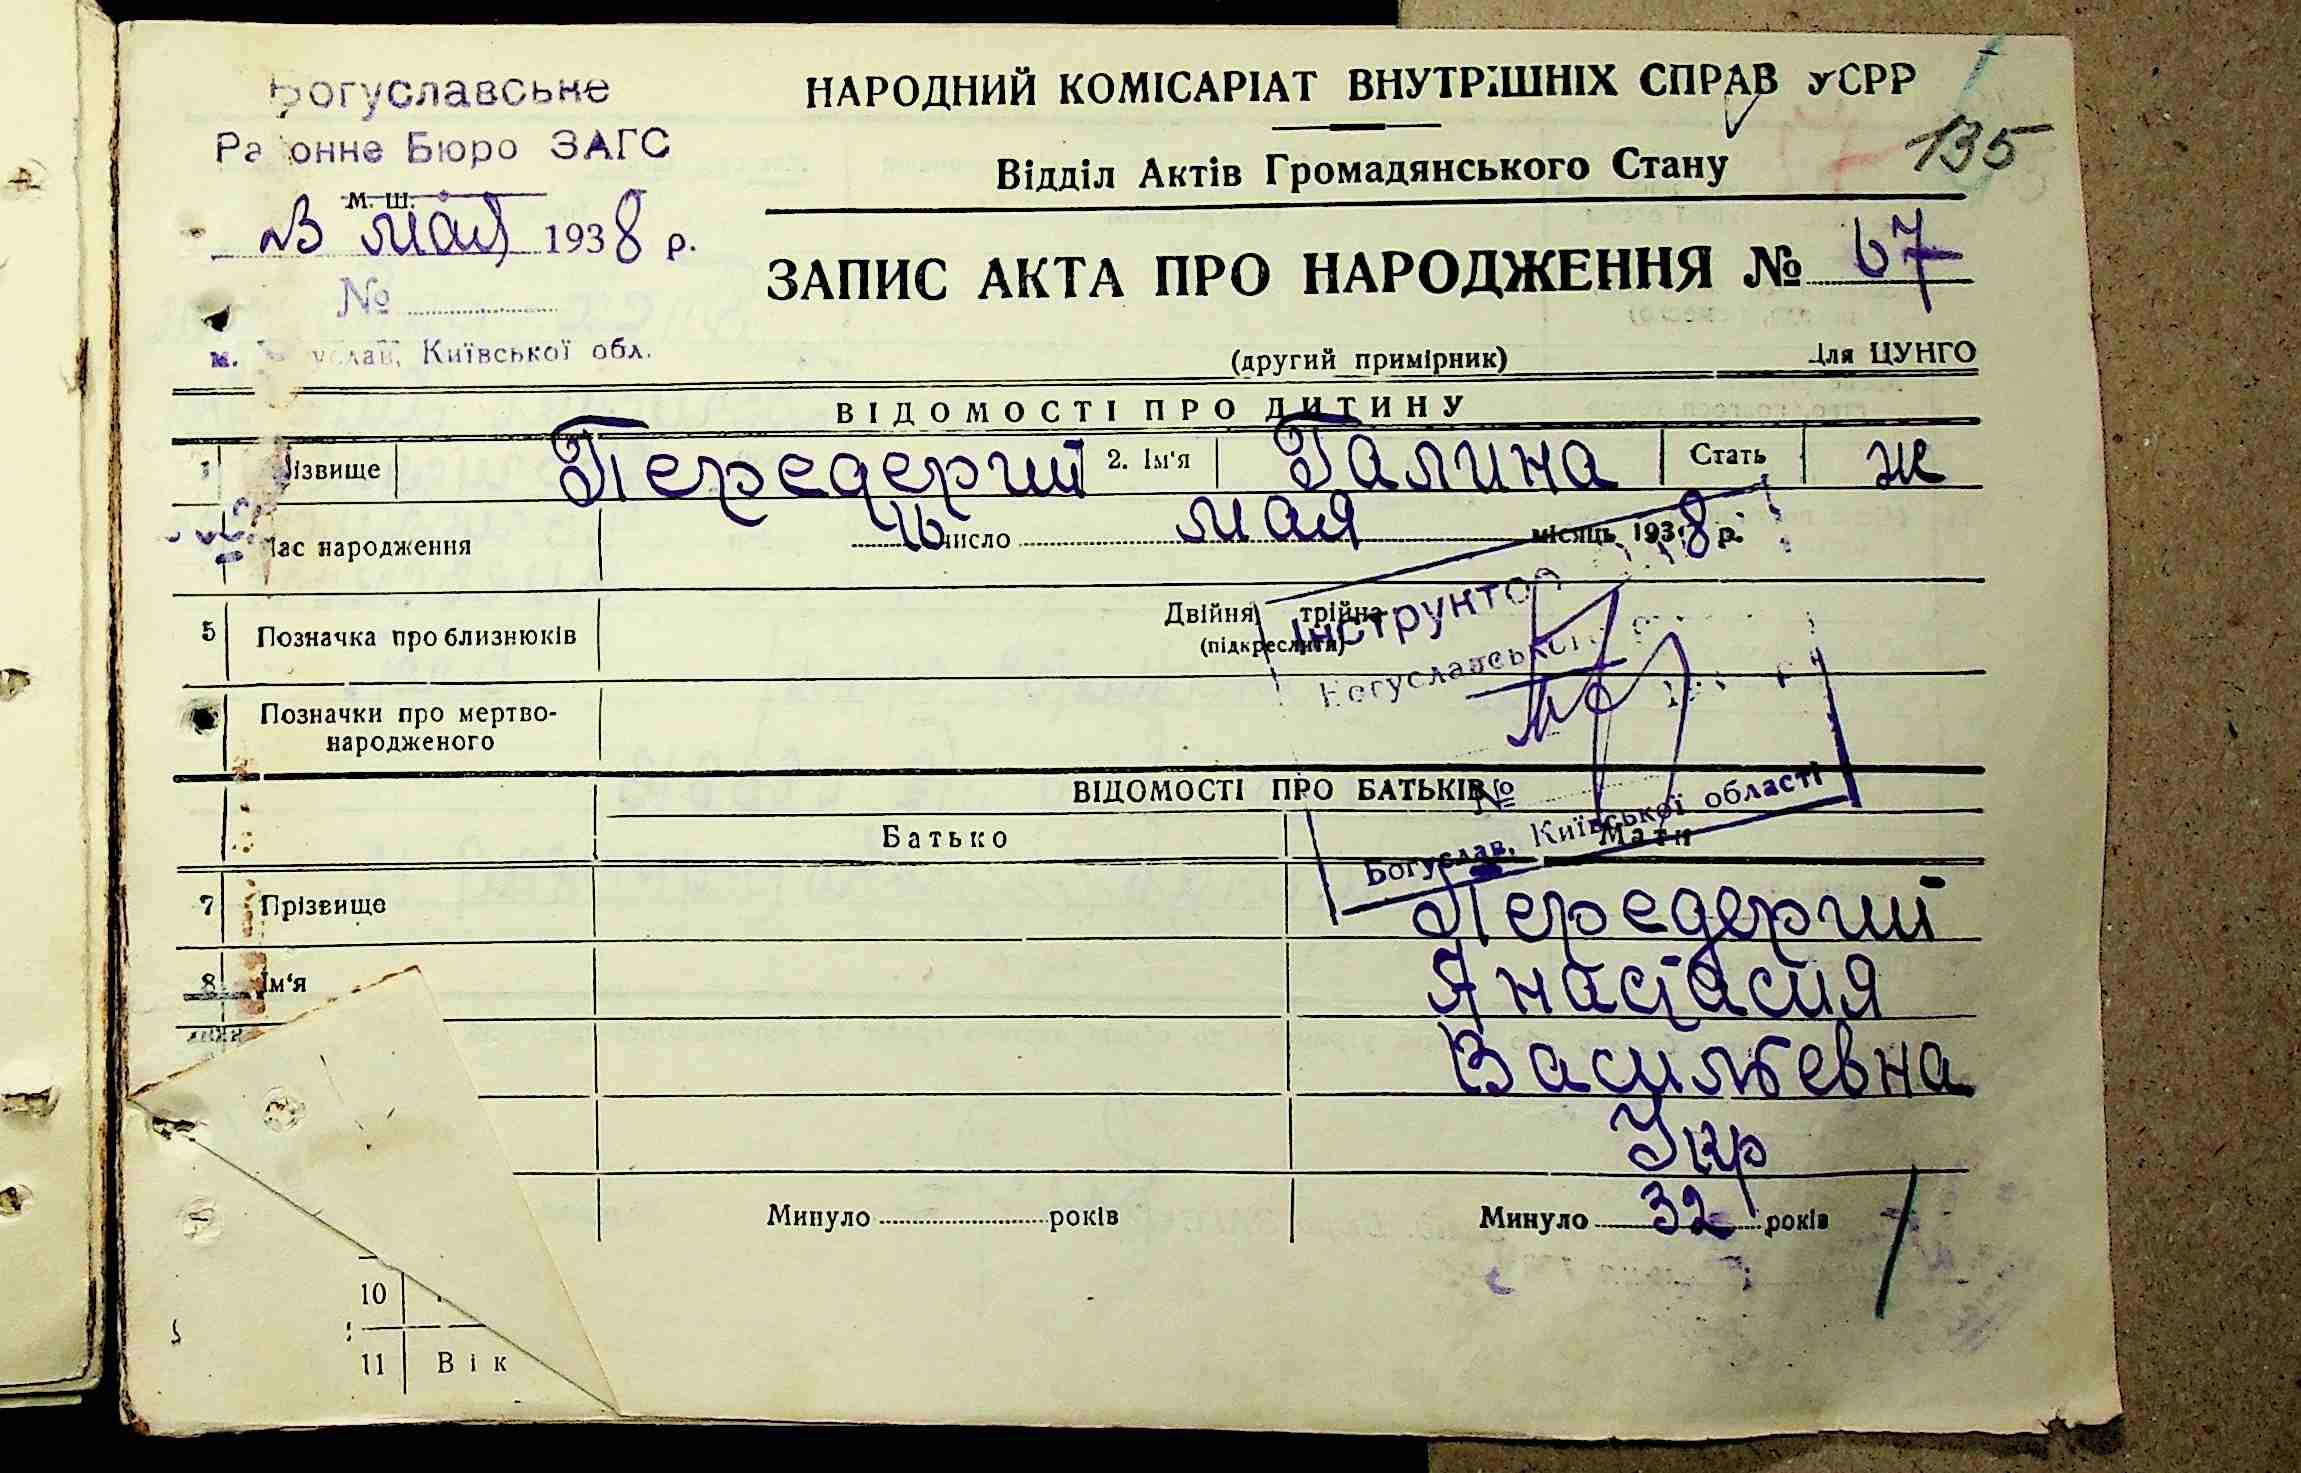 Богуславське
Районне Бюро ЗАГС
м. ш.
23 мая 1938 р.
№
м. Богуслав, Київської обл.
НАРОДНИЙ КОМІСАРІАТ ВНУТРІШНІХ СПРАВ УСРР
135
Відділ Актів Громадянського Стану
ЗАПИС АКТА ПРО НАРОДЖЕННЯ № 67
(другий примірник) Для ЦУНГО
ВІДОМОСТІ ПРО ДИТИНУ
1 Прізвище Передерий 2. Ім'я Галина Стать ж
Час народження 16 число мая місяць 1938 р.
5 Позначка про близнюків Двійня, трійня
(підкреслити)
Інструктор
Богуславського
Позначки про мертво-
народженого
ВІДОМОСТІ ПРО БАТЬКІВ
№
Богуслав, Київської області
Батько Мати
7 Прізвище Передерий
8 Ім'я Анастасия
Васильевна
Укр
Минуло років Минуло 32 років
10
11 Вік